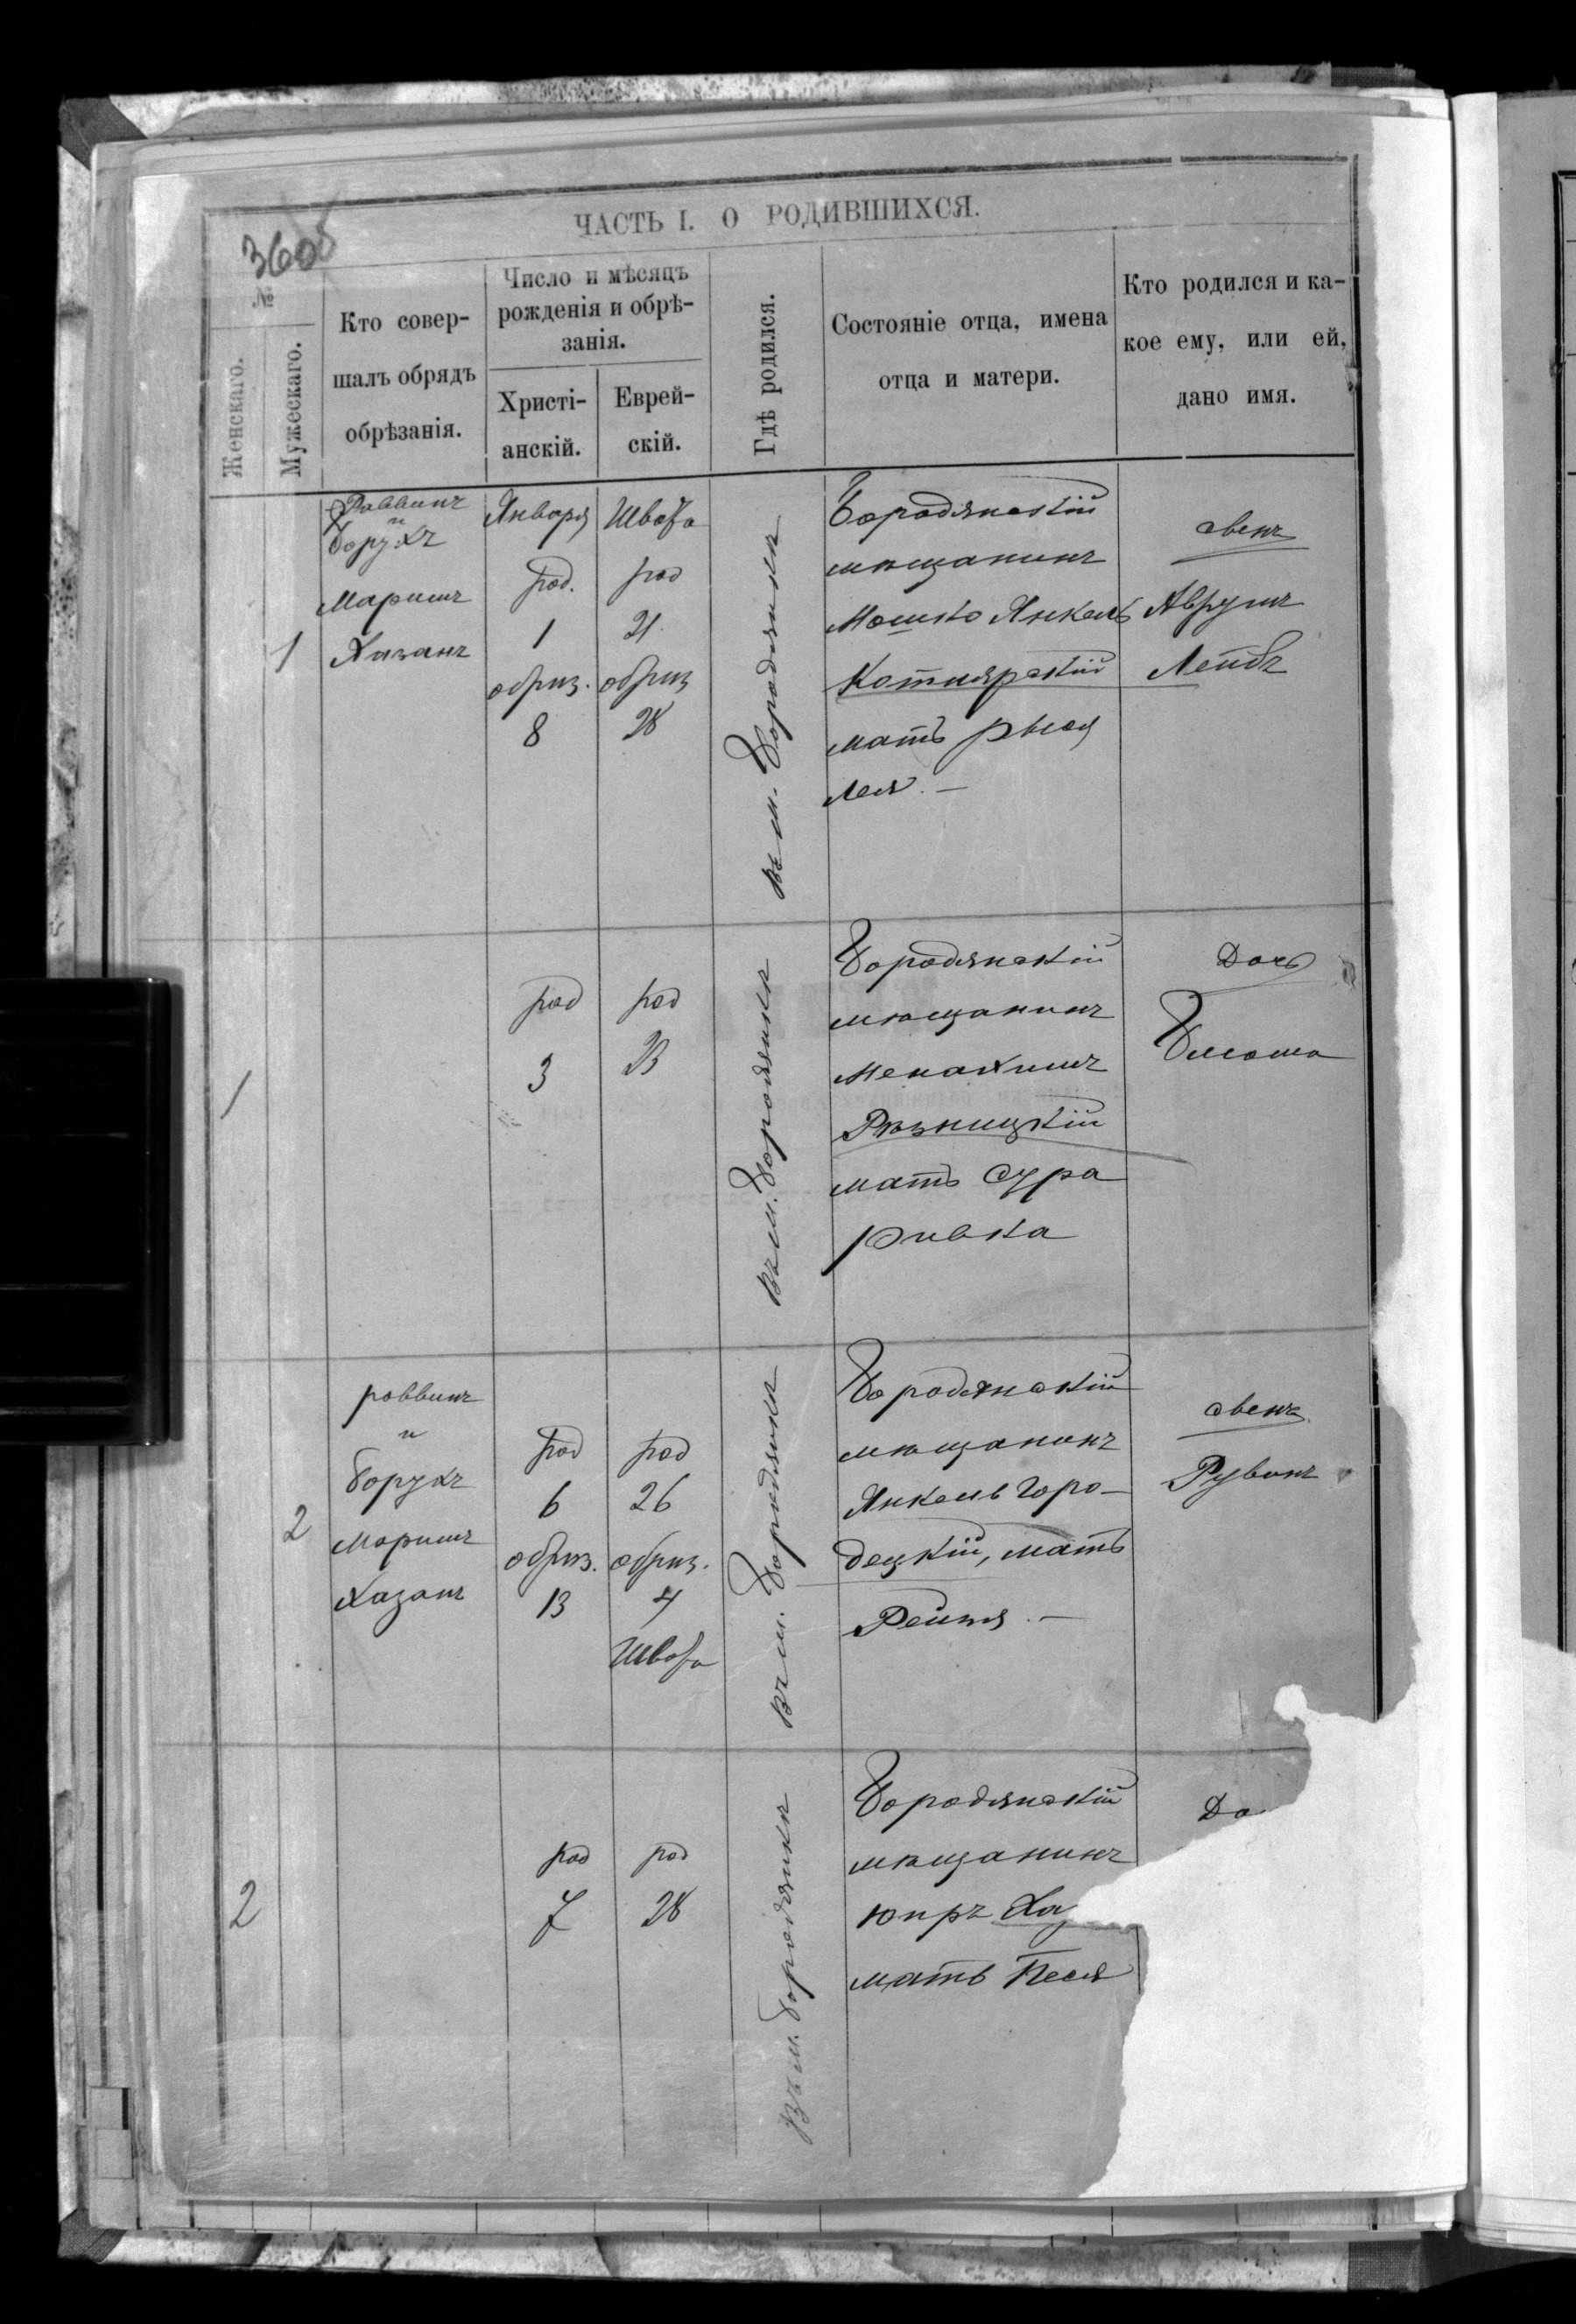 ЧАСТЬ I. О РОДИВШИХСЯ.
360
№
Женскаго.
Мужескаго.
Кто совер-
шалъ обрядъ
обрѣзанія.
Число и мѣсяцъ
рожденія и обрѣ-
занія.
Христі-
анскій.
Еврей-
скій.
Гдѣ родился.
Состояніе отца, имена
отца и матери.
Кто родился и ка-
кое ему, или ей,
дано имя.
1
Раввинъ
и
Борухъ
Маримъ
Хазанъ
Января
род.
1
обрѣз.
8
Швата
род
21
обрѣз
28
въ м. Бородянкѣ
Бородянскій
мѣщанинъ
Мошко Янкель
Котлярскій
мать
Лея. —
сынъ
Аврумъ
Лейбъ
1
род
3
род
23
въ м. Бородянкѣ
Бородянскій
мѣщанинъ
Менахимъ
Рѣзницкій
мать Сура
Ривка
Дочь
Блюма
2
раввинъ
и
Борухъ
Маримъ
Хазанъ
род
6
обрѣз.
13
род
26
обрѣз.
4
Швата
въ м. Бородянкѣ
Бородянскій
мѣщанинъ
Янкель Горо-
децкій, мать
Рейзя. —
сынъ
Рувинъ
2
род
7
род
28
въ м. Бородянкѣ
Бородянскій
мѣщанинъ
мать Песя
До